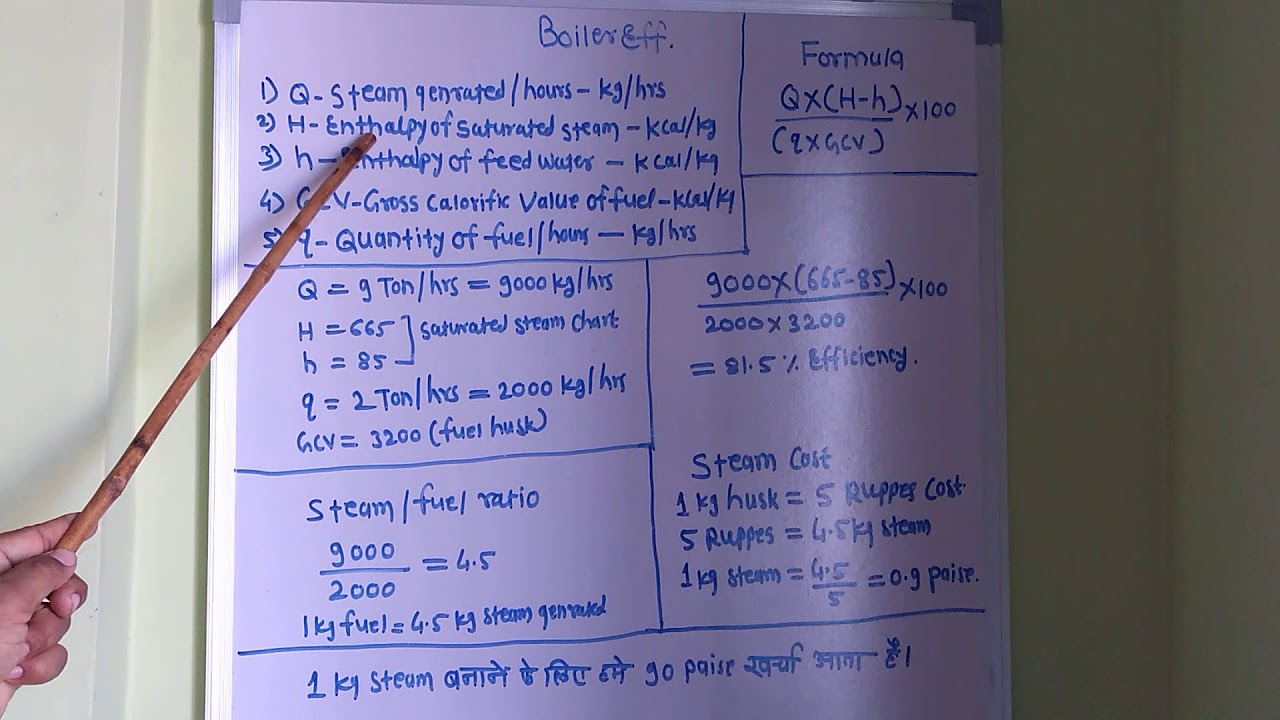 Boiler Eff.
1) Q - Steam genrated/hours - kg/hrs
2) H - Enthalpy of saturated steam - kcal/kg
3) h - Enthalpy of feed water - kcal/kg
4) GCV - Gross Calorific Value of fuel - kcal/kg
5) q - Quantity of fuel/hours - kg/hrs
Formula
Q×(H-h) ×100
(q×GCV)
Q = 9 Ton/hrs = 9000 kg/hrs
H = 665 ] saturated steam chart
h = 85
q = 2 Ton/hrs = 2000 kg/hrs
GCV = 3200 (fuel husk)
9000×(665-85) ×100
2000×3200
= 81.5 % Efficiency.
Steam/fuel ratio
9000 = 4.5
2000
1 kg fuel = 4.5 kg steam genrated
Steam Cost
1 kg husk = 5 Ruppes Cost.
5 Ruppes = 4.5 kg steam
1 kg steam = 4.5 = 0.9 paise.
5
1 kg steam बनाने के लिए हमे 90 paise खर्चा आता है।